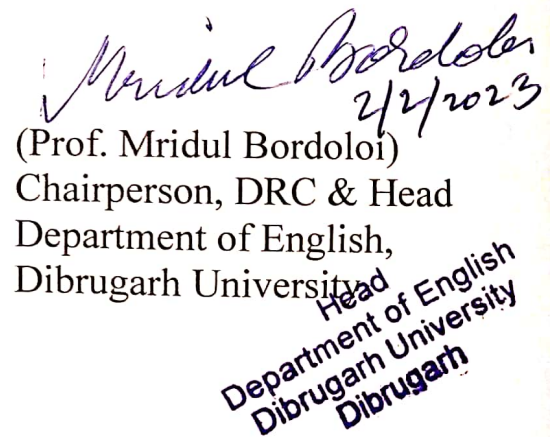 Mridul Bordoloi
2/2/2023
(Prof. Mridul Bordoloi)
Chairperson, DRC & Head
Department of English,
Dibrugarh University
Head
Department of English
Dibrugarh University
Dibrugarh